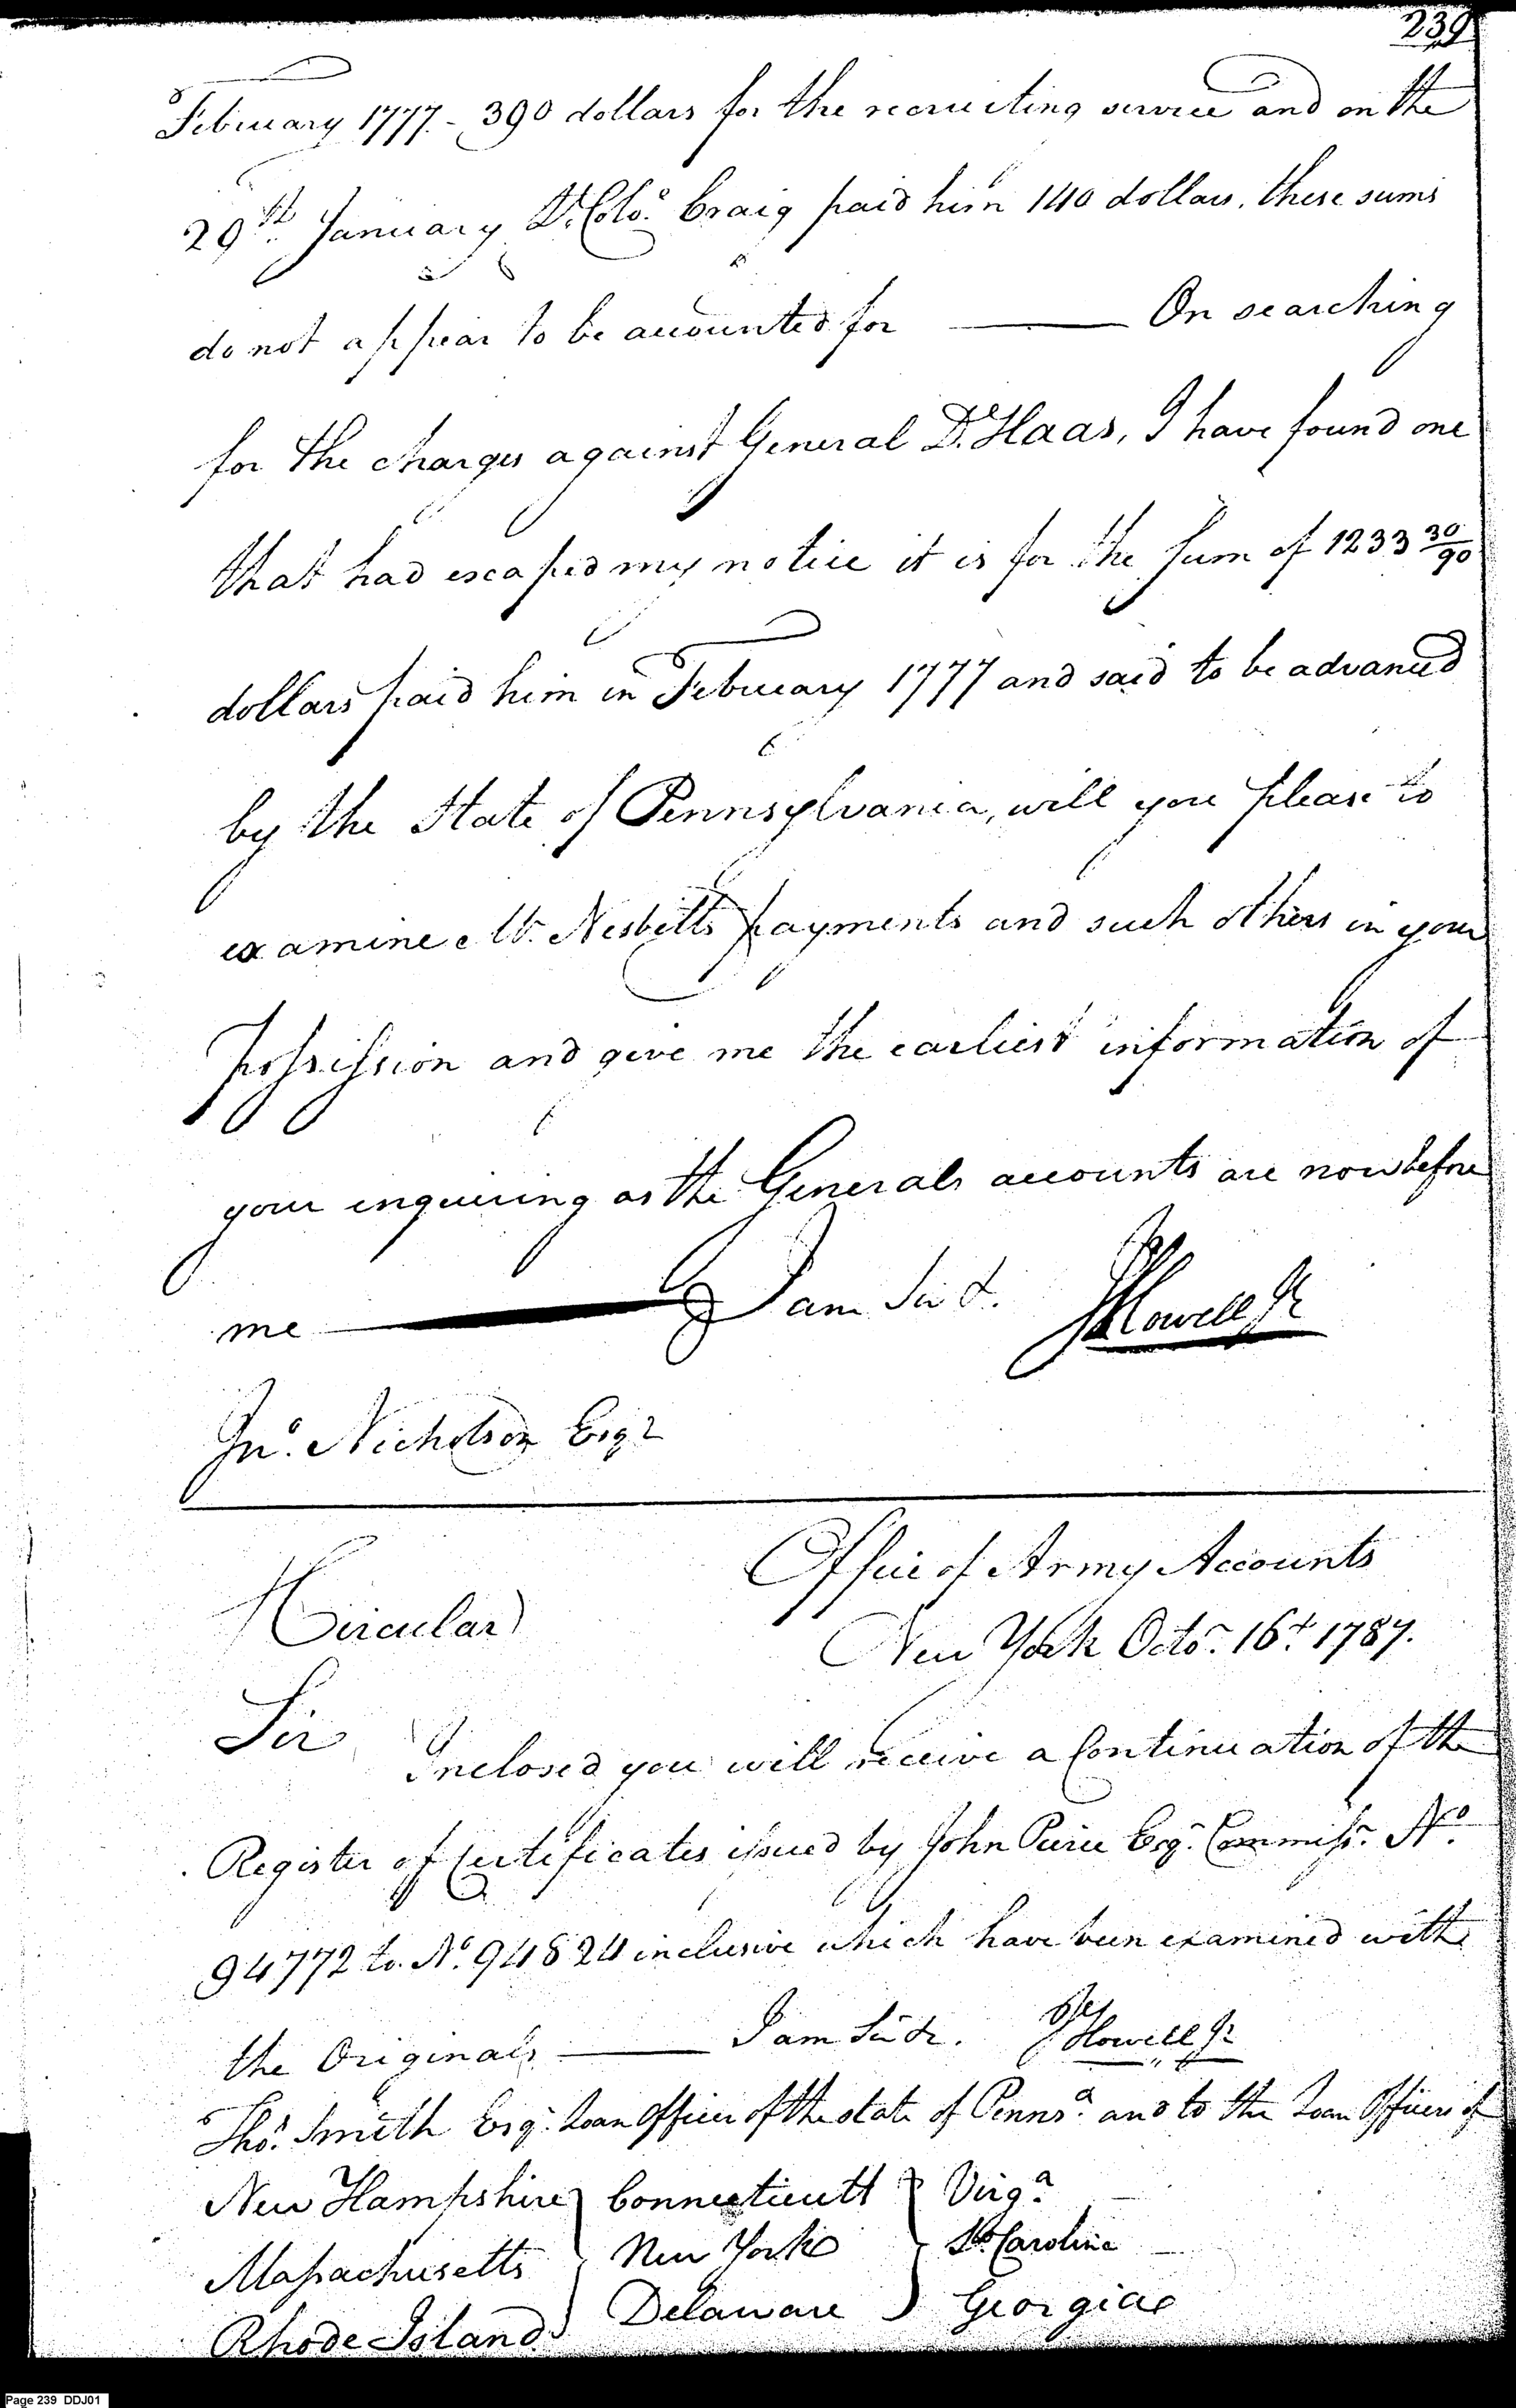 239
February 1777. - 390 dollars for the recruiting service and on the
29th January Lt. Colo. Craig paid him 140 dollars, these sums
do not appear to be accounted for ——— On searching
for the charges against General De Haas, I have found one
that had escaped my notice it is for the Sum of 1233 30/90
dollars paid him in February 1777 and said to be advanced
by the State of Pennsylvania, will you please to
examine Mr. Nesbitts payments and such others in your
Possession and give me the earliest information of
your enquiring as the Generals accounts are now before
me ——— I am Sir &. Jos Howell Jr
Jno. Nicholson Esqr
Office of Army Accounts
Circular) New York Octor. 16t. 1787.
Sir
Inclosed you will receive a Continuation of the
Register of Certificates issued by John Pierce Esqr. Commissr. No.
94772 to No. 94824 inclusive which have been examined with
the Originals ——— I am Sir &. Jos Howell Jr
Thos. Smith Esqr. Loan Officer of the state of Pennsa. and to the Loan Officers of
New Hampshire } Connecticutt } Virga.
Massachusetts } New York } So. Carolina
Rhode Island } Delaware } Georgia
Page 239 DDJ01